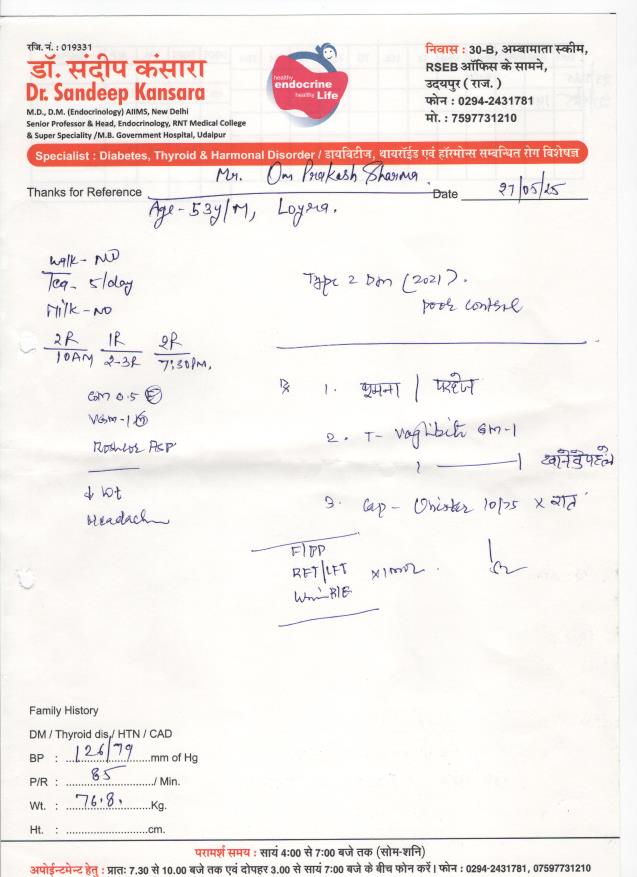 रजि. नं. : 019331
डॉ. संदीप कंसारा
Dr. Sandeep Kansara
M.D., D.M. (Endocrinology) AIIMS, New Delhi
Senior Professor & Head, Endocrinology, RNT Medical College
& Super Speciality /M.B. Government Hospital, Udaipur
healthy
endocrine
healthy Life
निवास : 30-B, अम्बामाता स्कीम,
RSEB ऑफिस के सामने,
उदयपुर ( राज. )
फोन : 0294-2431781
मो. : 7597731210
Specialist : Diabetes, Thyroid & Harmonal Disorder / डायबिटीज, थायरॉईड एवं हॉरमोन्स सम्बन्धित रोग विशेषज्ञ
Thanks for Reference Mr. Om Prakash Sharma Date 27/05/25
Age - 53y/M, Loyra.
Walk - NO
Tea - 5/day
Milk - NO
2R 1R 2R
10AM 2-3R 7:30PM.
GM 0.5
VGM-1
ASP
↓ Wt
Headach
Type 2 Dm (2021).
poor control
Rx 1. घूमना / परहेज
2. T- Vaglibite GM-1
1 ——— 1 खाने से पहले
3. Cap - 10/75 x रात
F/PP
RFT/LFT
Family History
DM / Thyroid dis./ HTN / CAD
BP : 126/79 mm of Hg
P/R : 85 / Min.
Wt. : 76.8. Kg.
Ht. : cm.
परामर्श समय : सायं 4:00 से 7:00 बजे तक (सोम-शनि)
अपोईन्टमेन्ट हेतु : प्रातः 7.30 से 10.00 बजे तक एवं दोपहर 3.00 से सायं 7:00 बजे के बीच फोन करें। फोन : 0294-2431781, 07597731210